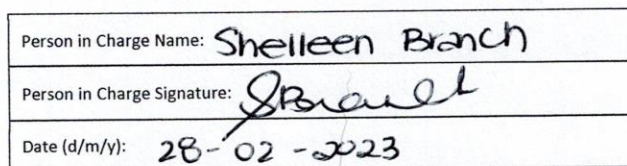 Person in Charge Name: Shelleen Branch
Person in Charge Signature: SBranch
Date (d/m/y): 28-02-2023